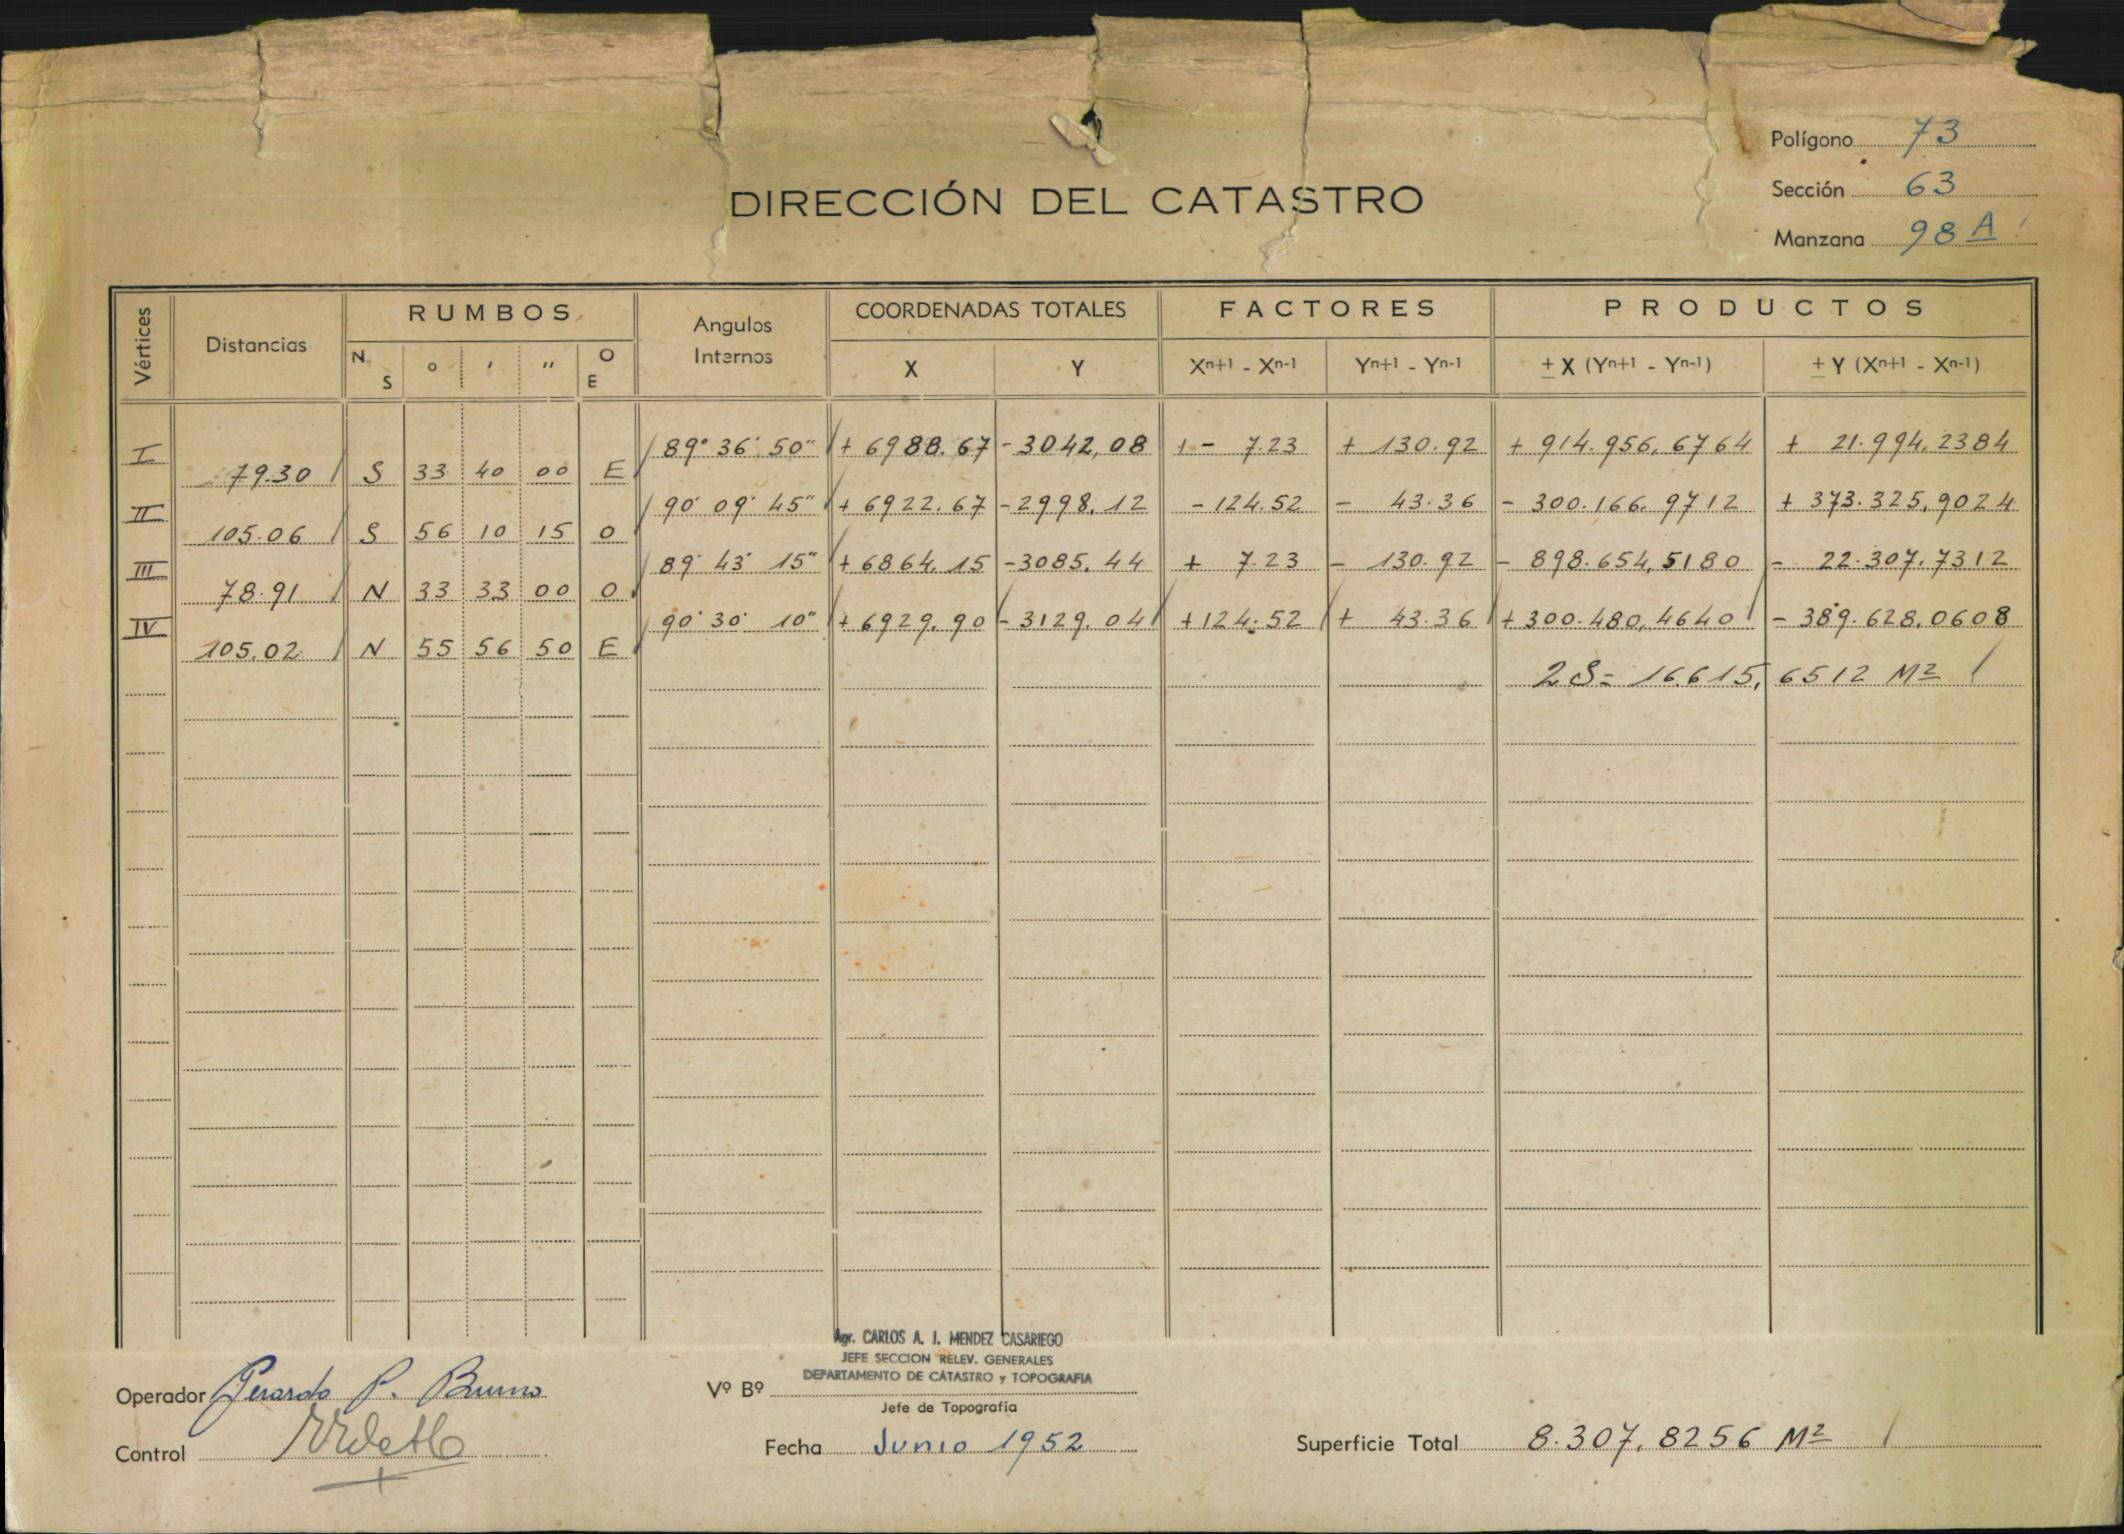 Polígono 73
Sección 63
DIRECCIÓN DEL CATASTRO
Manzana 98 A
Vértices Distancias RUMBOS Angulos Internos COORDENADAS TOTALES FACTORES PRODUCTOS
N S ° ' " O E X Y Xn+1 - Xn-1 Yn+1 - Yn-1 ± X (Yn+1 - Yn-1) ± Y (Xn+1 - Xn-1)
I 89° 36' 50" + 6988.67 - 3042,08 + - 7.23 + 130.92 + 914.956,6764 + 21.994,2384
79.30 S 33 40 00 E
II 90° 09' 45" + 6922.67 - 2998.12 - 124.52 - 43.36 - 300.166,9712 + 373.325,9024
105.06 S 56 10 15 O
III 89° 43' 15" + 6864.15 - 3085.44 + 7.23 - 130.92 - 898.654,5180 - 22.307.7312
78.91 N 33 33 00 O
IV 90° 30' 10" + 6929.90 - 3129.04 + 124.52 + 43.36 + 300.480,4640 - 389.628,0608
105.02 N 55 56 50 E
2S = 16.615,6512 M²
Agr. CARLOS A. J. MENDEZ CASARIEGO
JEFE SECCION RELEV. GENERALES
DEPARTAMENTO DE CATASTRO y TOPOGRAFIA
Operador Gerardo P. Bruno
Vº Bº
Jefe de Topografía
Control
Fecha Junio 1952
Superficie Total 8.307,8256 M²